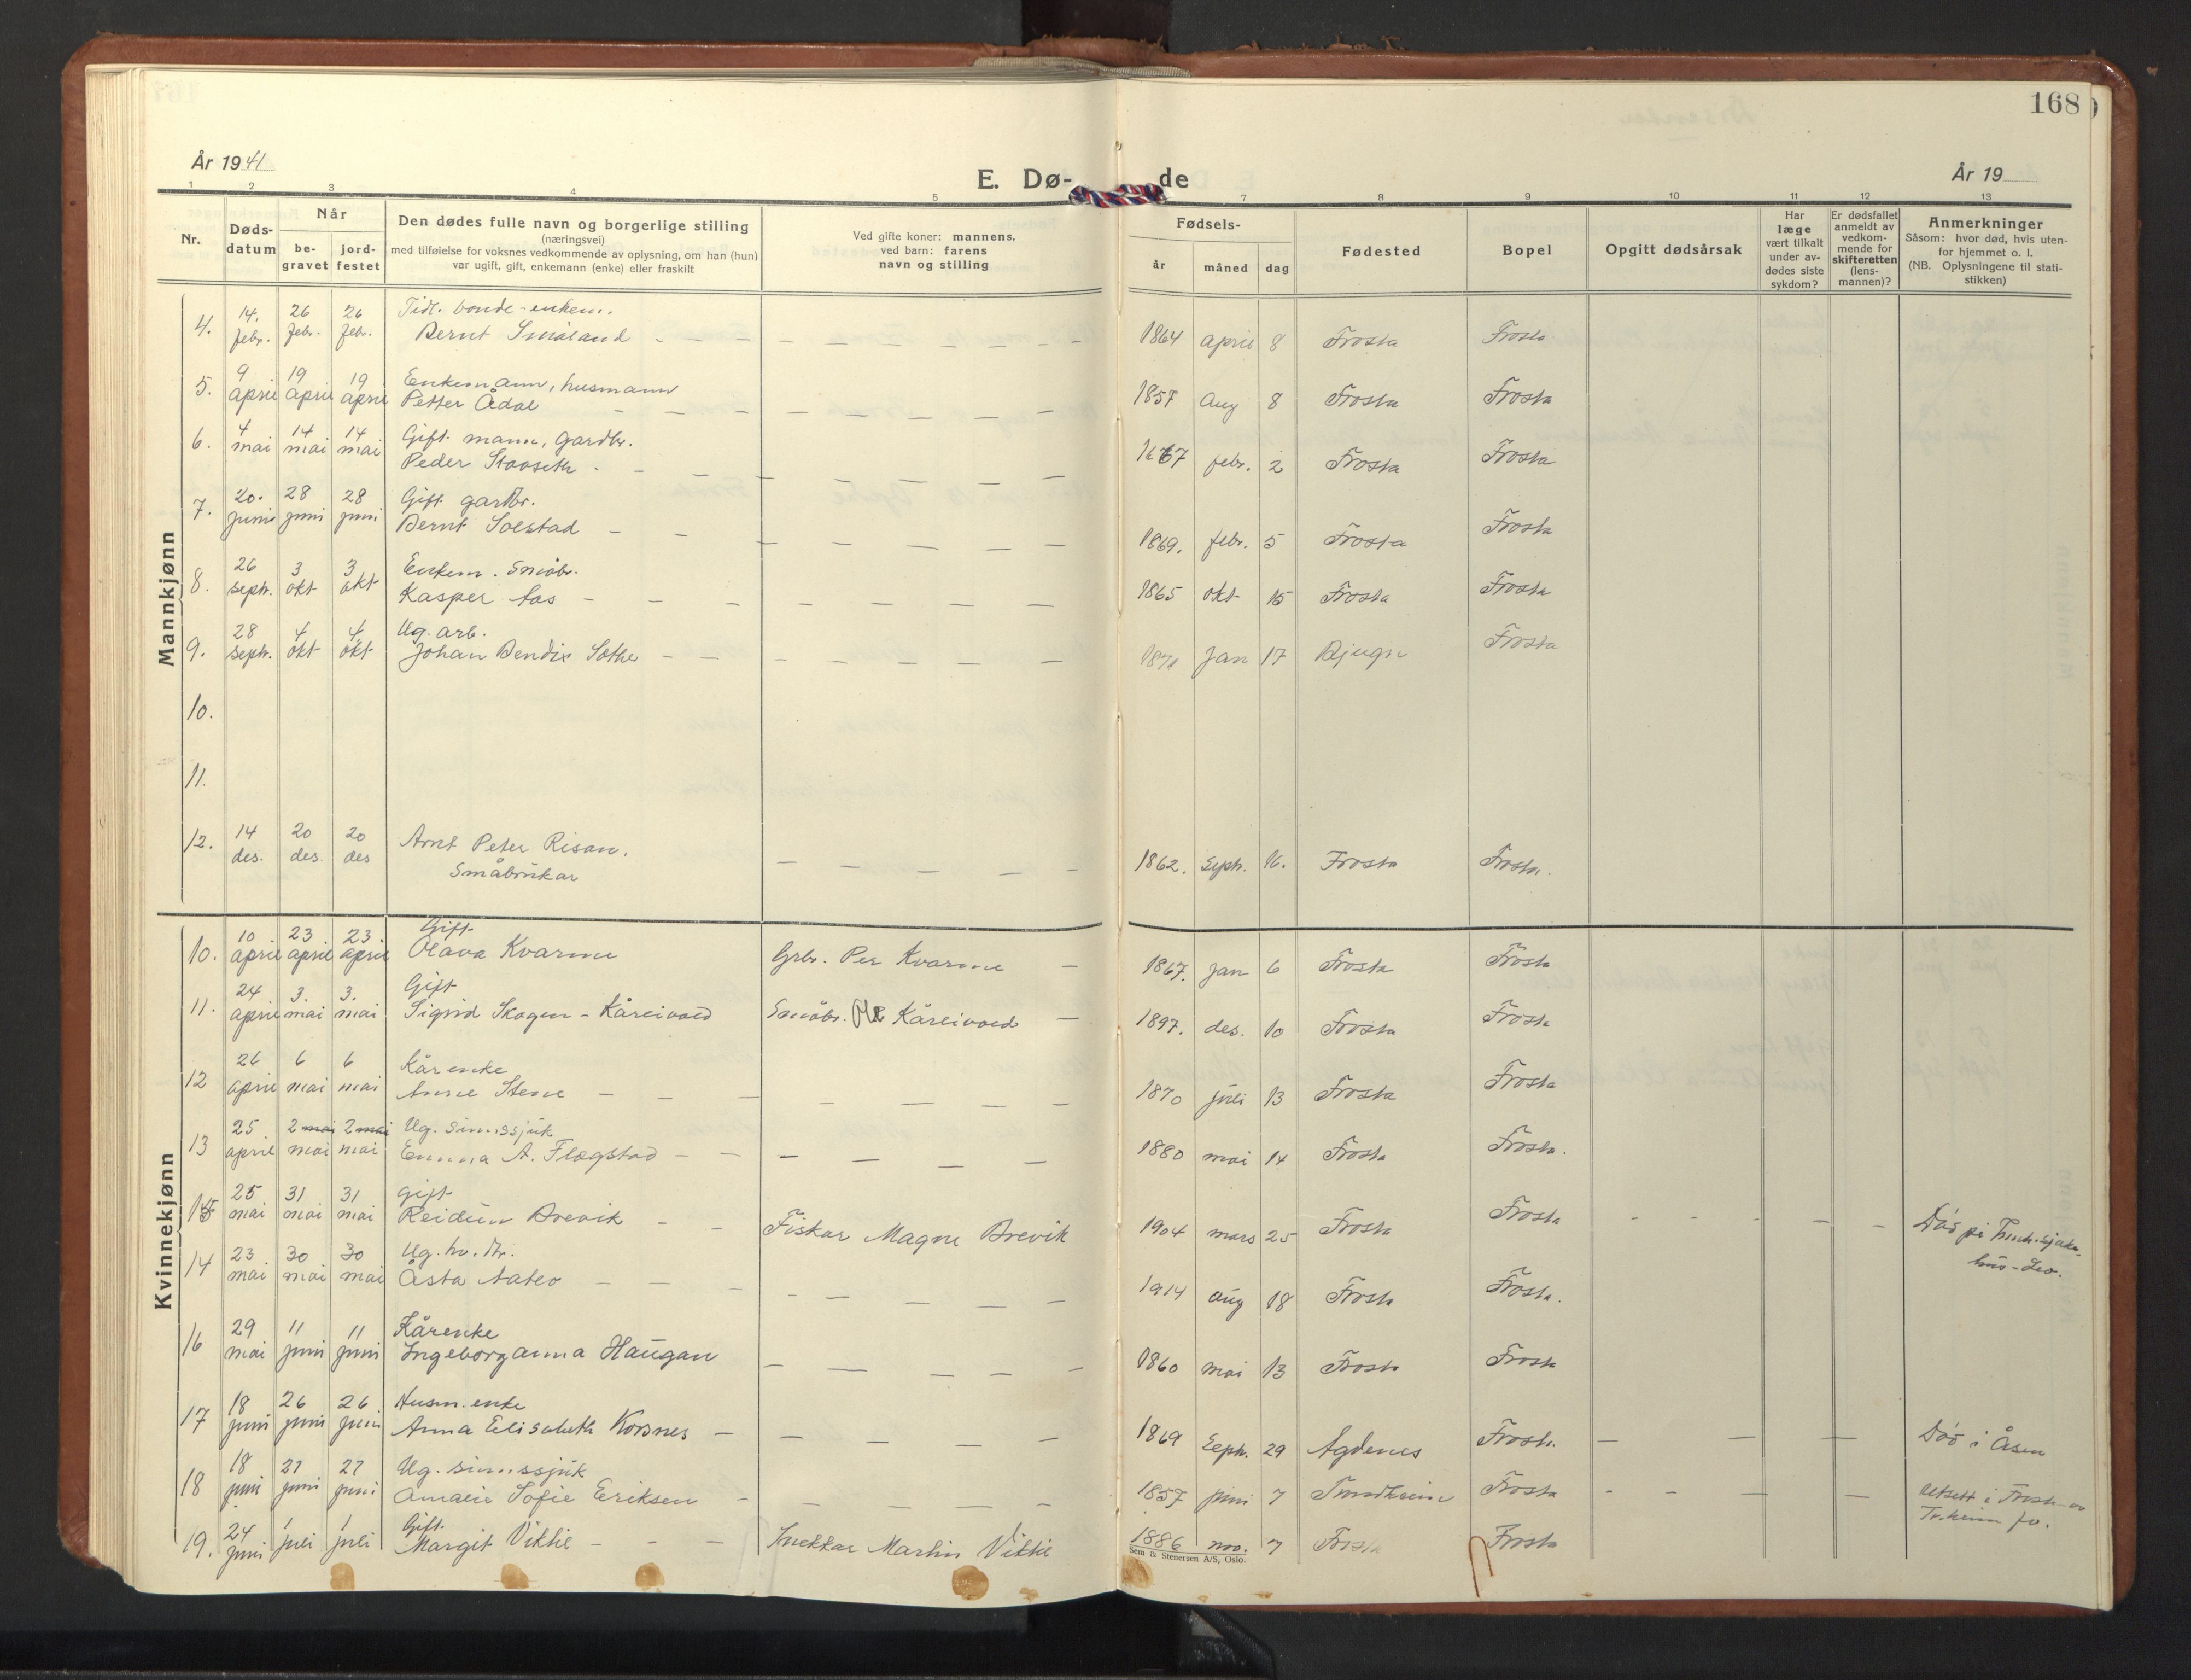 168
År 1941
E. Dø-
de
År 19
1 2 3 4 5 7 8 9 10 11 12 13
Nr.
Døds-
datum
Når
be-
gravet
jord-
festet
Den dødes fulle navn og borgerlige stilling
(næringsvei)
med tilføielse for voksnes vedkommende av oplysning, om han (hun)
var ugift, gift, enkemann (enke) eller fraskilt
Ved gifte koner: mannens,
ved barn: farens
navn og stilling
Fødsels-
år
måned
dag
Fødested
Bopel
Opgitt dødsårsak
Har
læge
vært tilkalt
under av-
dødes siste
sykdom?
Er dødsfallet
anmeldt av
vedkom-
mende for
skifteretten
(lens-
mannen)?
Anmerkninger
Såsom: hvor død, hvis uten-
for hjemmet o. l.
(NB. Oplysningene til stati-
stikken)
Mannkjønn
14. 26 26 Tidl. bonde-enkem.
4. febr. febr. febr. Bernt Småland 1864 april 8 Frosta Frosta
9 19 19 Enkemann, husmann
5. april april april Petter Ådal 1857 Aug 8 Frosta Frosta
4 14 14 Gift mann, gardbr.
6. mai mai mai Peder 1867 febr. 2 Frosta Frosta
20. 28 28 Gift gardbr.
7. juni juni juni Bernt Solstad 1869. febr. 5 Frosta Frosta
26 3 3 Enkem. Småbr.
8. sept. okt okt Kasper Aas 1865 okt 15 Frosta Frosta
28 4 4 Ug. arb.
9. sept. okt okt Johan Bendix 1871 jan 17 Bjugn Frosta
10.
11.
14 20 20
12. des. des. des Arnt Peter Risan. 1862. sept. 16. Frosta Frosta.
Småbrukar
Kvinnekjønn
10 23 23 Gift
10. april april april Olava Kvarme Grbr. Per Kvarme 1867. jan 6 Frosta Frosta
24 3. 3. Gift
11. april mai mai Sigrid Skogen - Kåreivold Småbr. Ole Kåreivold 1897. des. 10 Frosta Frosta
26 6 6 Kårenke
12 april mai mai Anne Stene 1870 juli 13 Frosta Frosta
25 2 mai 2 mai Ug. sinnssjuk
13 april mai mai Emma A. Flagstad 1880 mai 14 Frosta Frosta.
25 31 31 gift
15 mai mai mai Reidun Brevik Fiskar Magne Brevik 1904 mars 25 Frosta Frosta Død på
23 30 30 Ug.
14 mai mai mai Åsta 1914 aug 18 Frosta Frosta.
29 11 11 Kårenke
16 mai juni juni Ingeborganna Haugan 1860 mai 13 Frosta Frosta
18 26 26 Husm. enke
17 juni juni juni Anna Elisabeth Korsnes 1869 Sept. 29 Agdenes Frosta Død i Åsen
18 27 27 Ug. sinnssjuk
18 juni juni juni Amalie Sofie Eriksen 1857 juni 7 Trondheim Frosta
24 1 1 Gift
19. juni juli juli Margit Viktil Snekkar Martin Viktil 1886 nov. 7 Frosta Frosta
Sem & Stenersen A/S, Oslo.